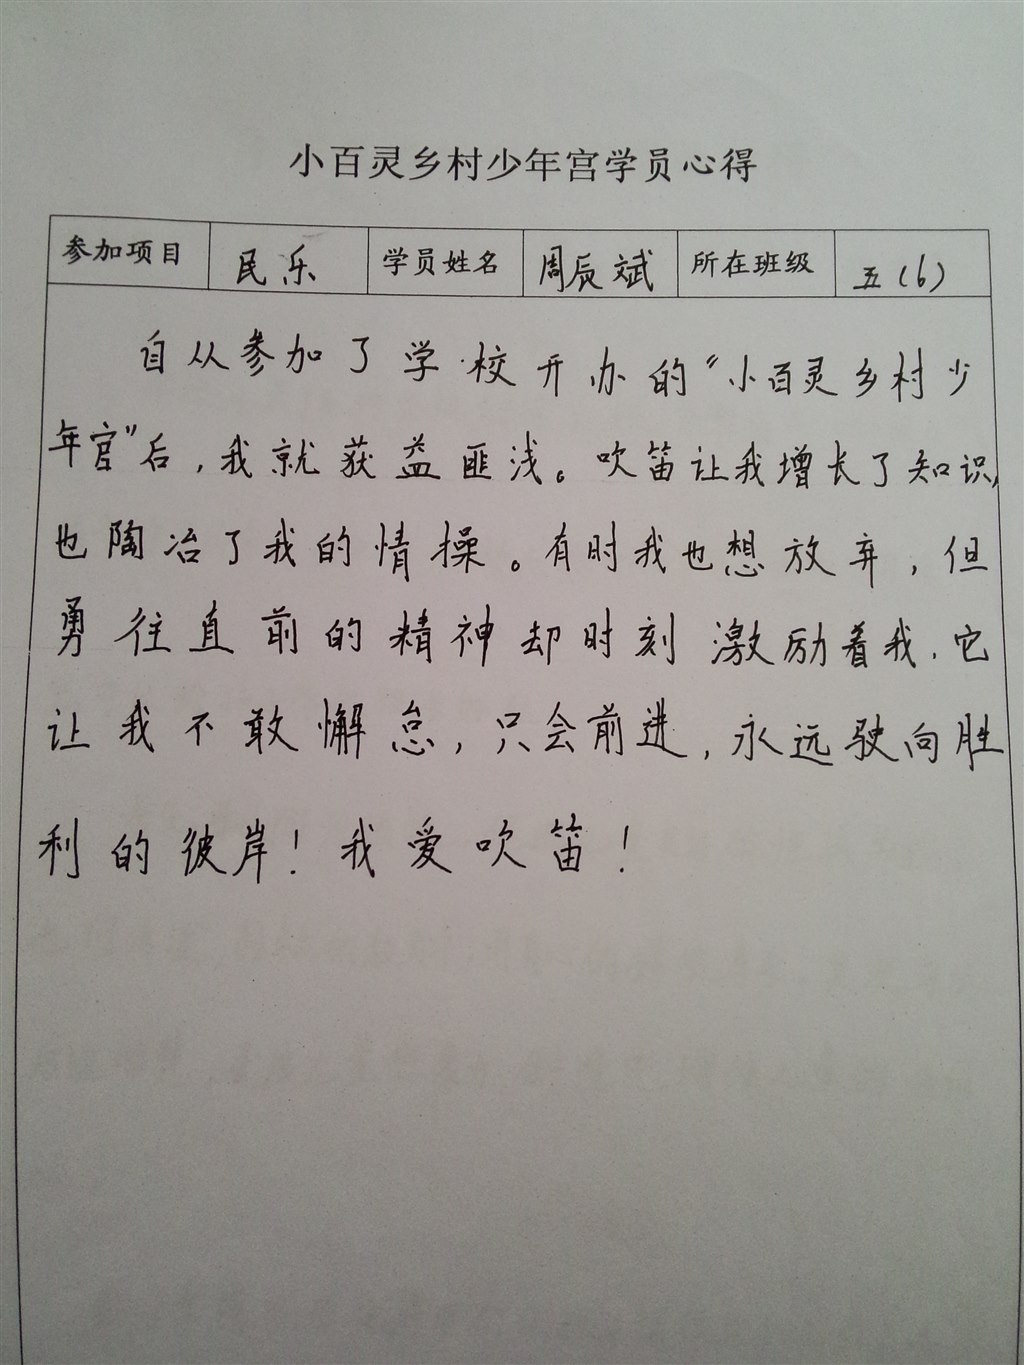 小百灵乡村少年宫学员心得
参加项目 民乐 学员姓名 周辰斌 所在班级 五（6）
自从参加了学校开办的“小百灵乡村少
年宫”后，我就获益匪浅。吹笛让我增长了知识，
也陶冶了我的情操。有时我也想放弃，但
勇往直前的精神却时刻激励着我．它
让我不敢懈怠，只会前进，永远驶向胜
利的彼岸！我爱吹笛！